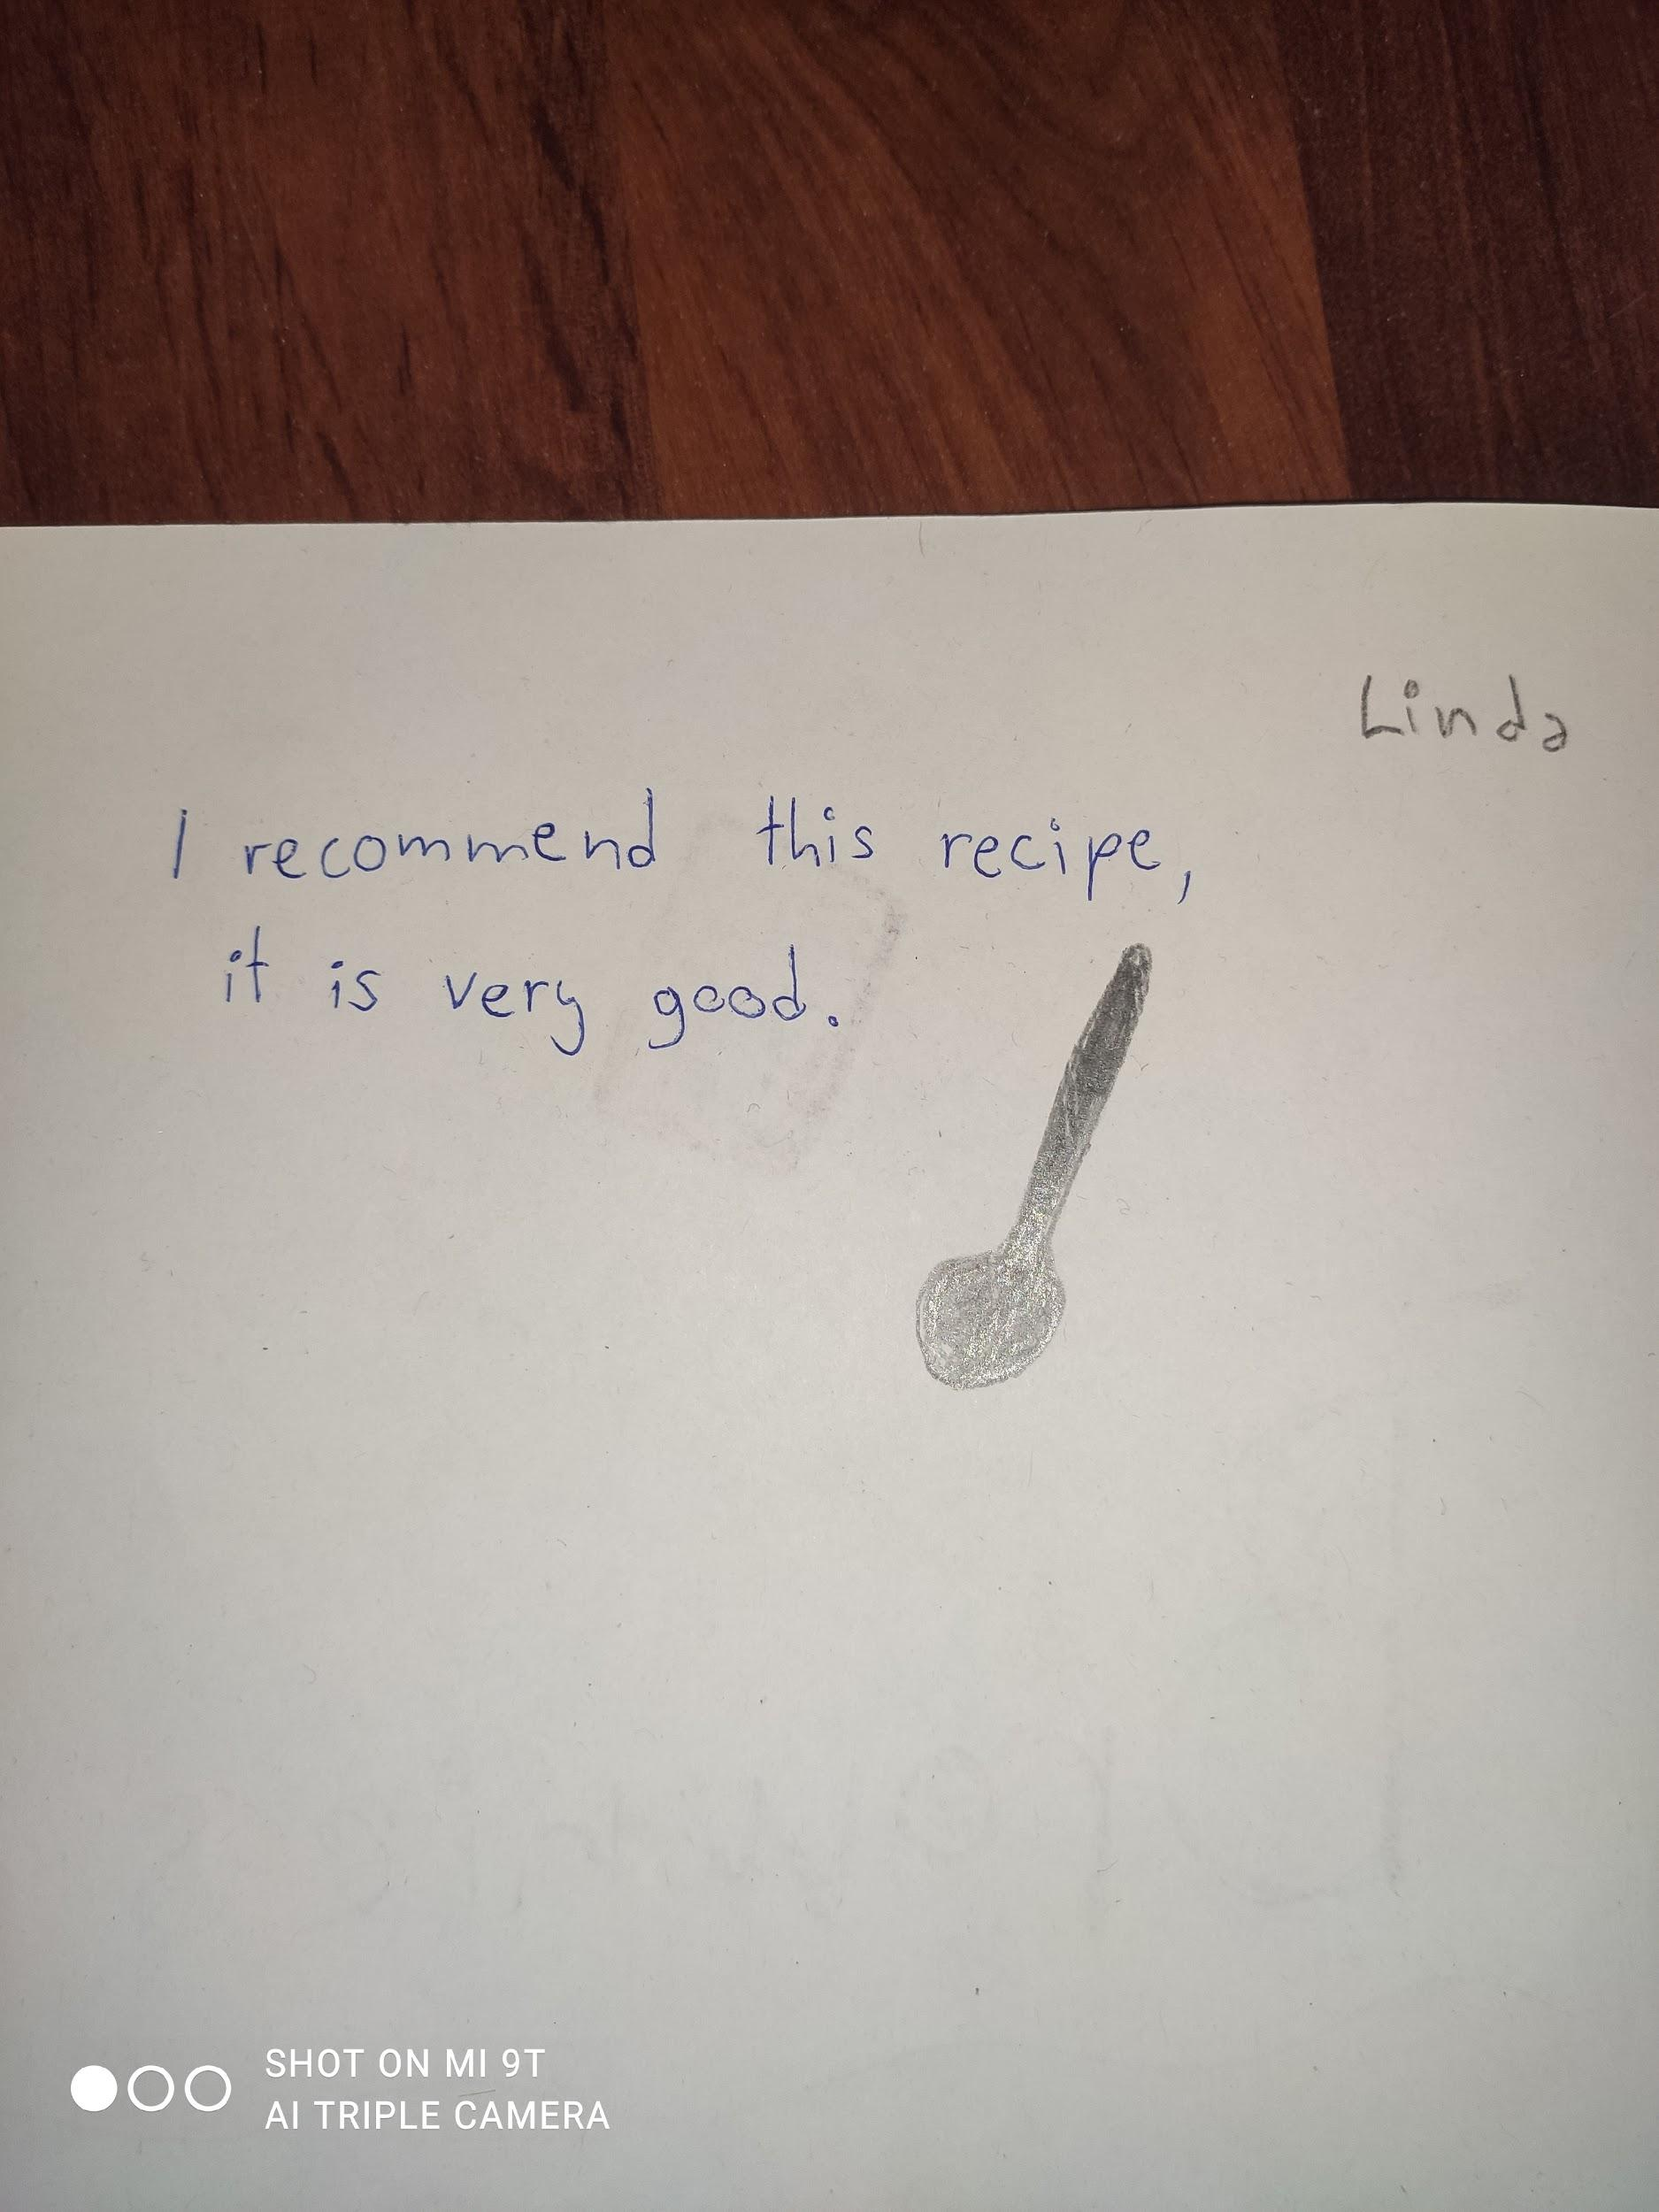 Linda
I recommend this recipe,
it is very good.
SHOT ON MI 9T
AI TRIPLE CAMERA